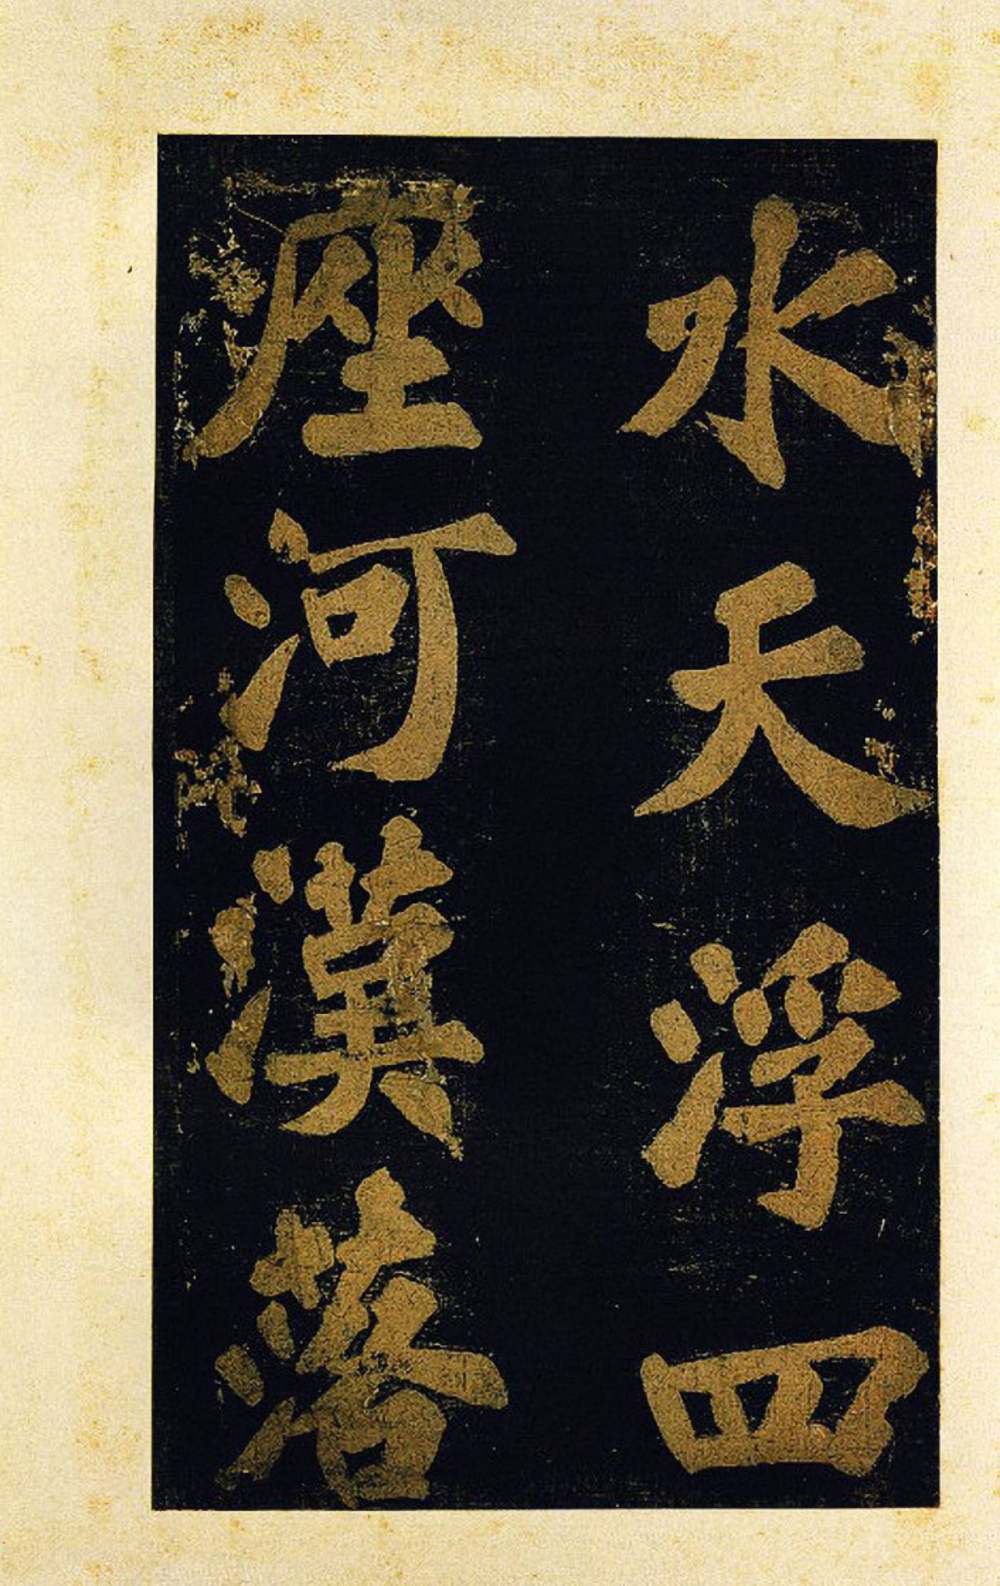 水天浮四
座河漢落